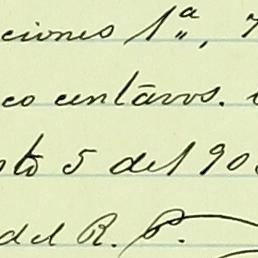 ciones 1ª,
co centavos.
sto 5 del 90
del R. P.